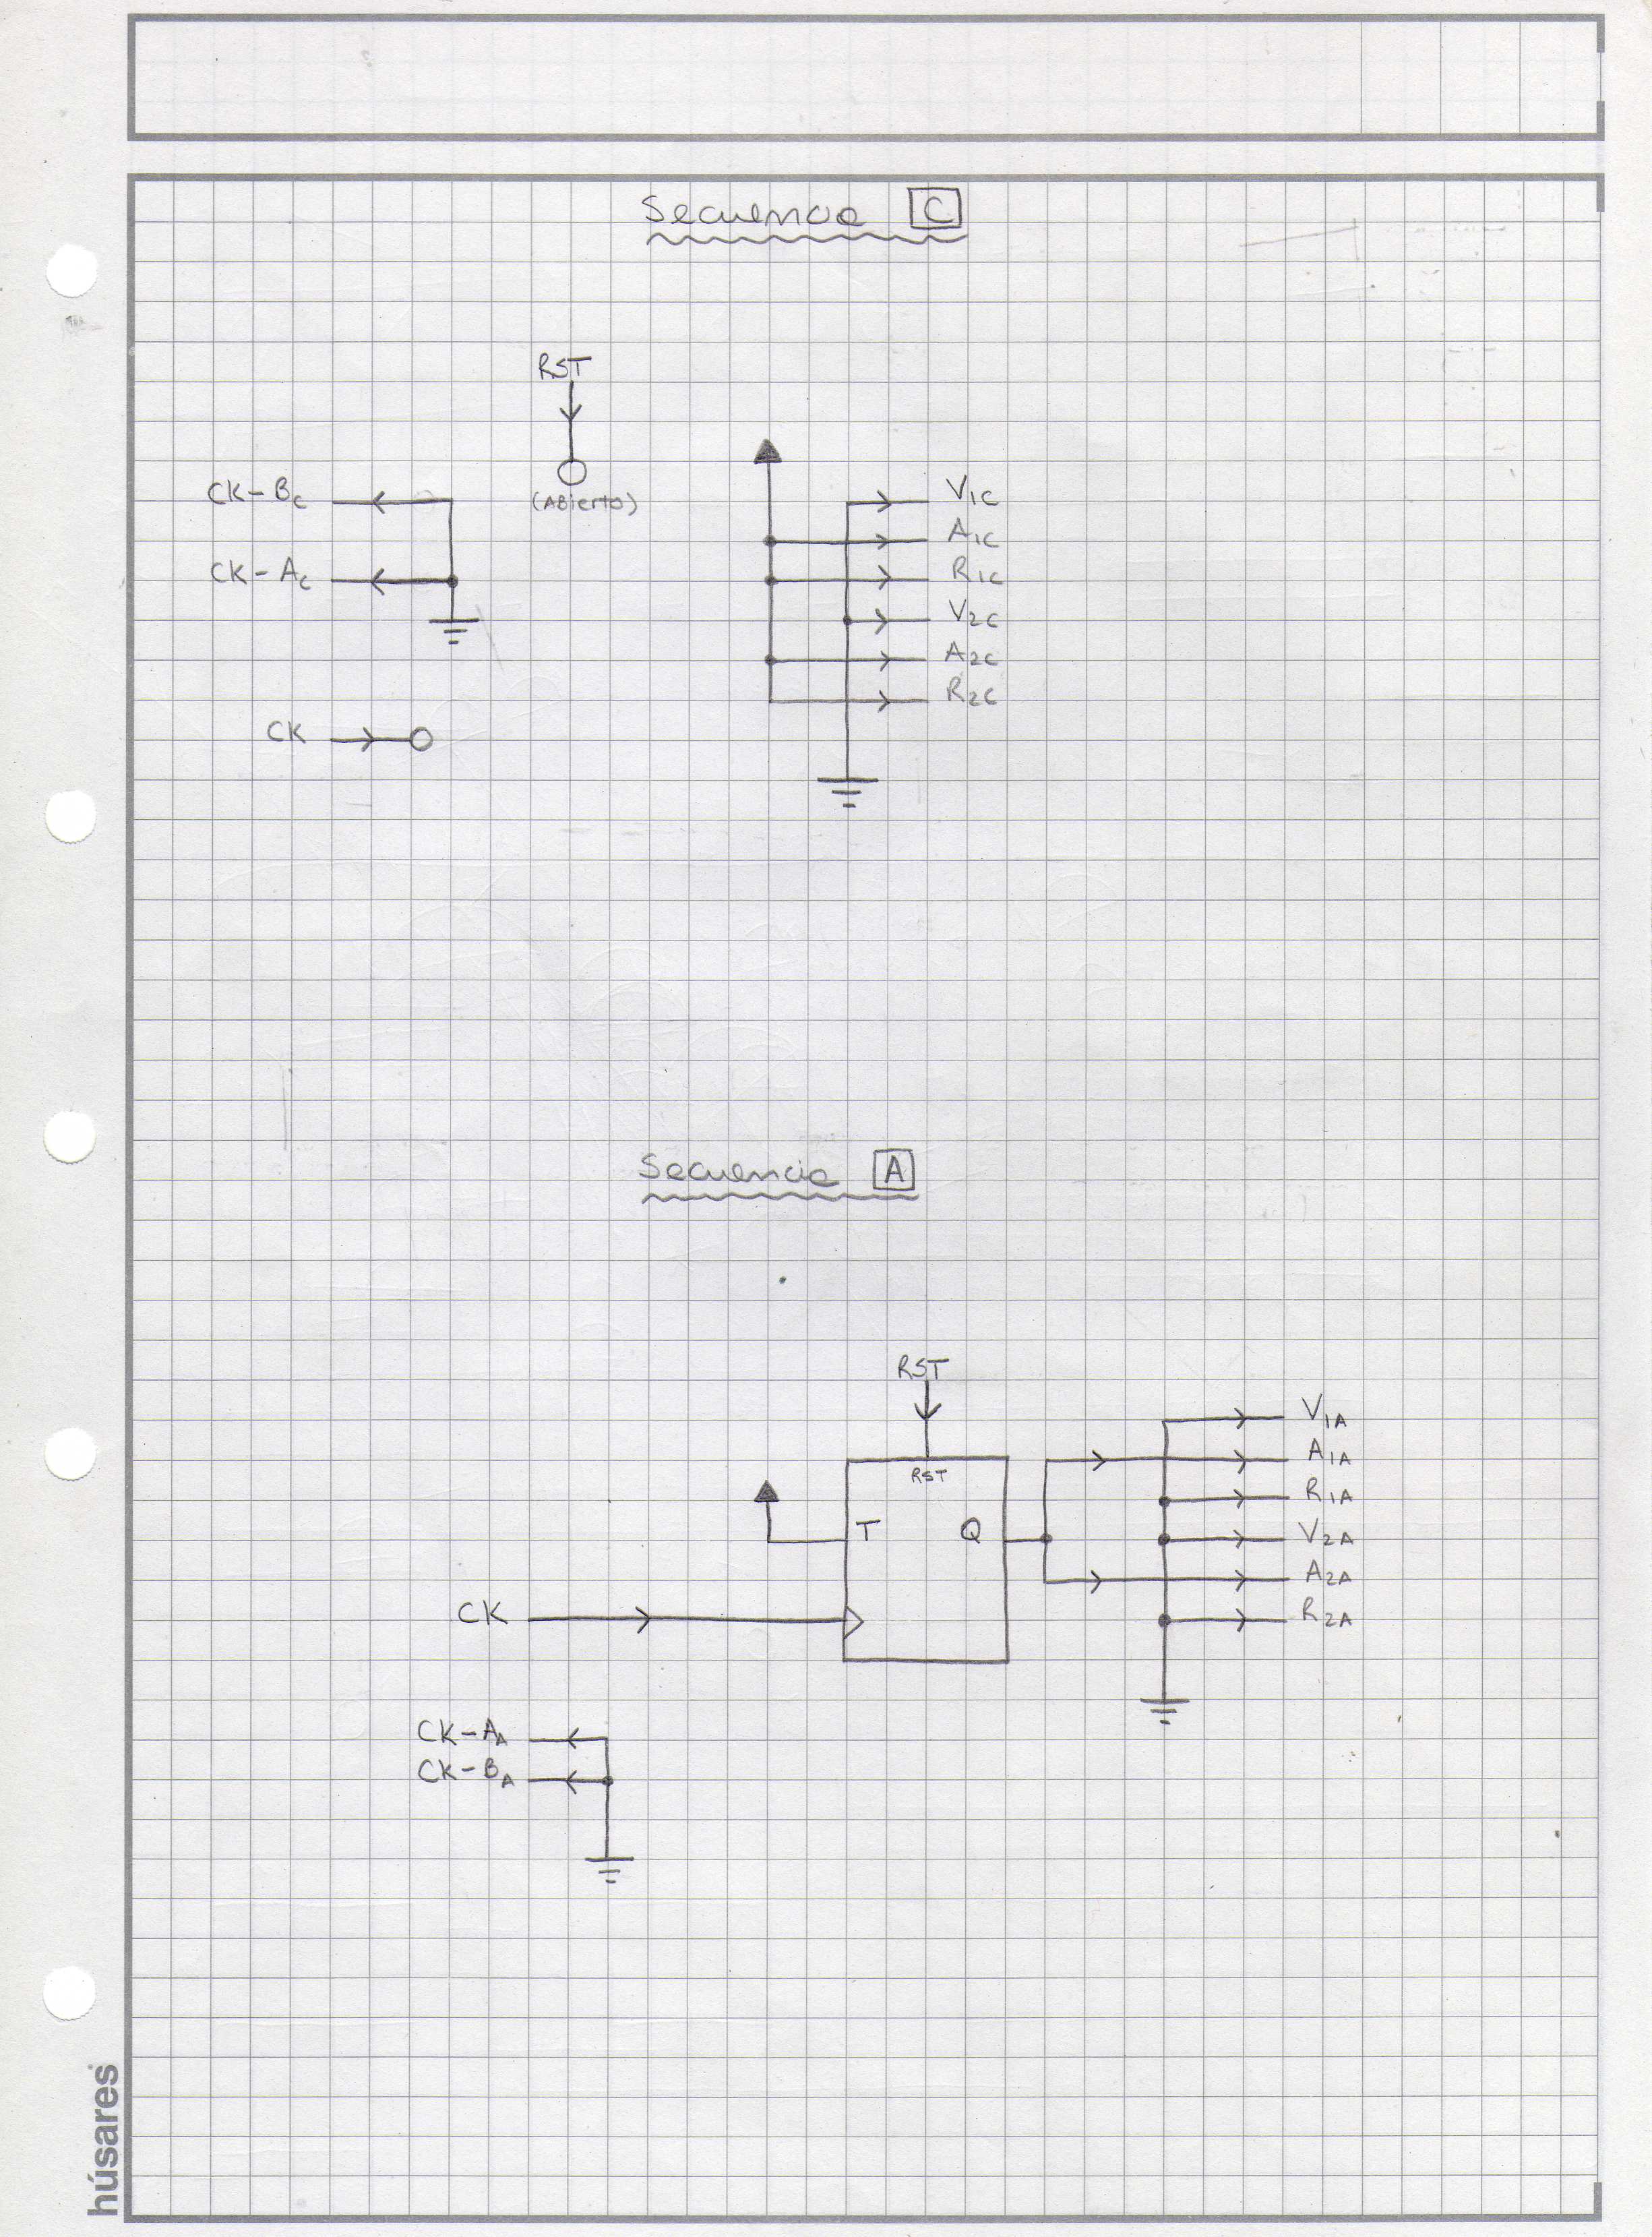 Secuencia C
RST
(Abierto)
CK-BC
CK-AC
CK
V1C
A1C
R1C
V2C
A2C
R2C
Secuencia A
RST
RST
T Q
CK
V1A
A1A
R1A
V2A
A2A
R2A
CK-AA
CK-BA
húsares